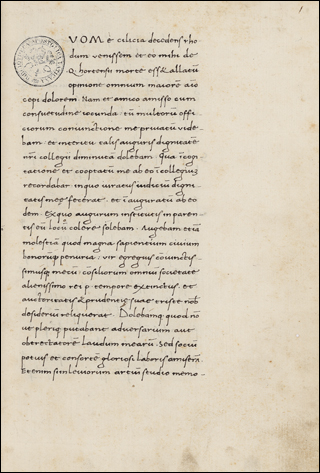 VOM e cilicia decedens rho
dum venissem et eo mihi de
Q hortensii morte esset allatū
opinione omnium maiorē aīo
cepi dolorem. Nam et amico amisso cum
consuetudine iocunda tū multorū offi
ciorum coniunctione me privatū vide
bam et interitu talis auguris dignitatē
nr̄i collegii diminutā dolebam. Qua ī cogi
tatione et cooptatū me ab eo ī collegiū
recordabar in quo iuratus iudiciū digni
tatis meę fecerat. et ī auguratū ab eo
dem. Ex quo augurum institutis in paren
tis eū locū colere solebam. Augebam etiā
molestiā quod magna sapientium civium
bonorūq; penuria. vir egregius coniunctis
simusq; mecū cōsiliorum omniū societate
alienissimo rei p. tempore extinctus. et
auctoritatis & prudentię suae triste nob
desideriū reliquerat. Dolebamq; quod nō
ut pleriq; putabant adversarium aut
obtrectatorē laudum mearū. Sed sociū
potius et consortē gloriosi laboris amiserā.
Etenim si in leviorum artiū studio memo